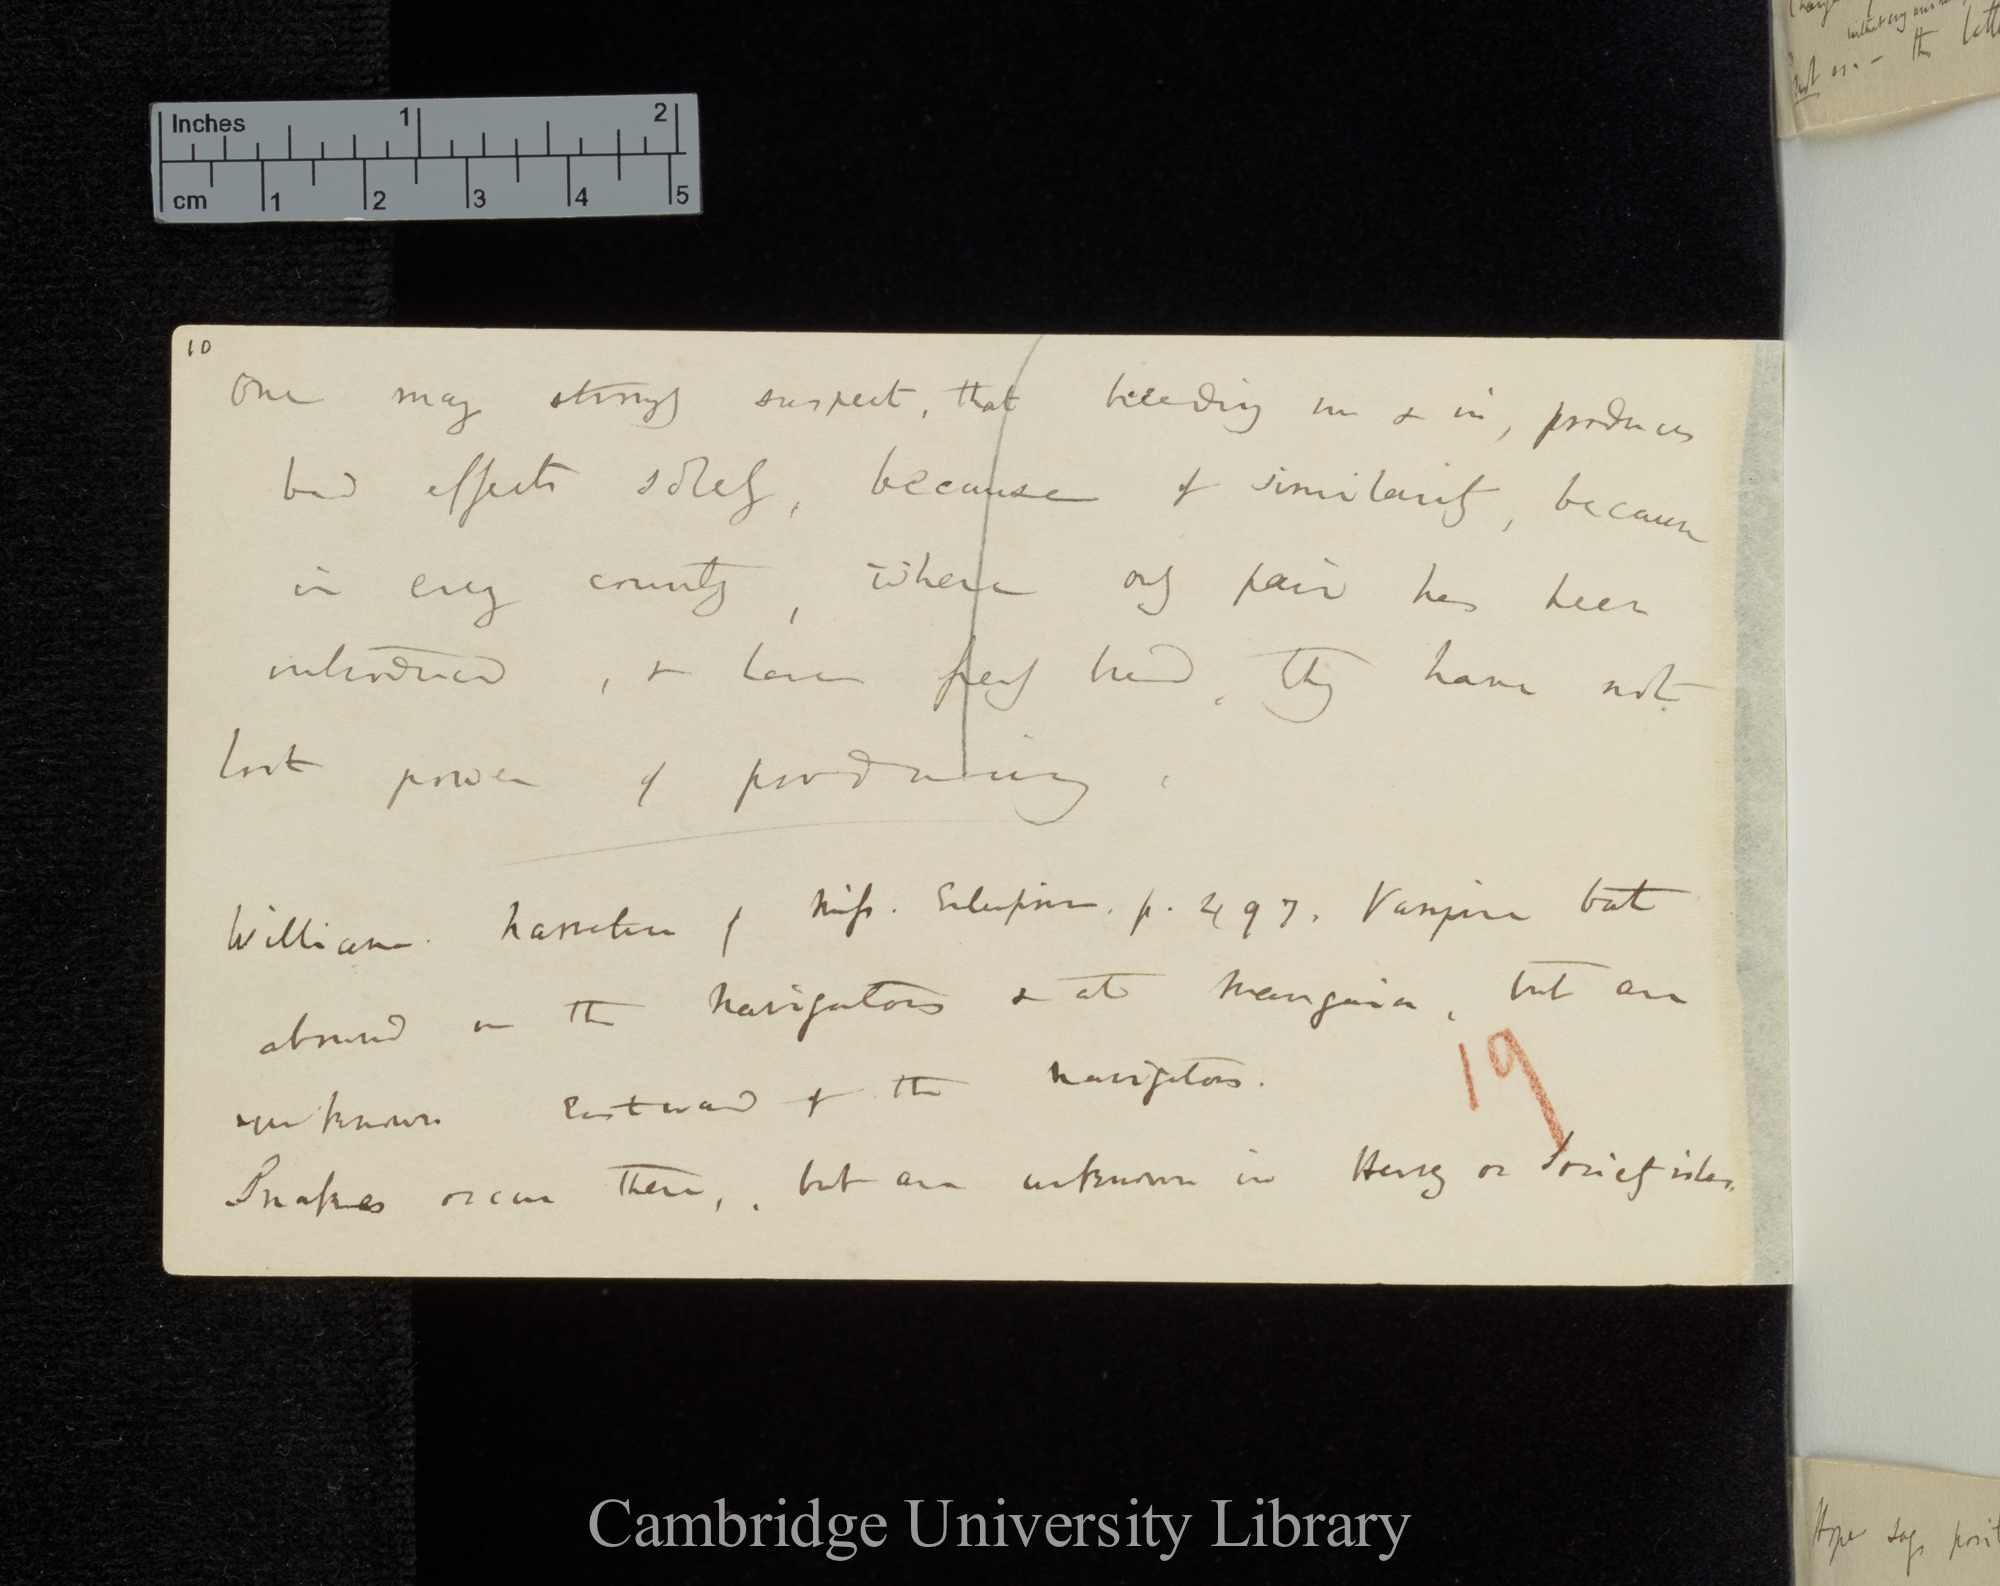 Inches 1 2
cm 1 2 3 4 5
10
One may strongly suspect, that breeding in & in, produces
bad effects solely, because of similarity, because
in every country, where only pair has been
introduced, & have freely bred, they have not
lost power of producing.
Williams. Narrative of Miss. Enterprise. p. 497. Vampire bat
abound in the Navigators & at Mangaia, but are
unknown Eastward of the Navigators.
19
Snakes occur there, but are unknown in Hervey or Society isles.
not
the
Hope says
Cambridge University Library